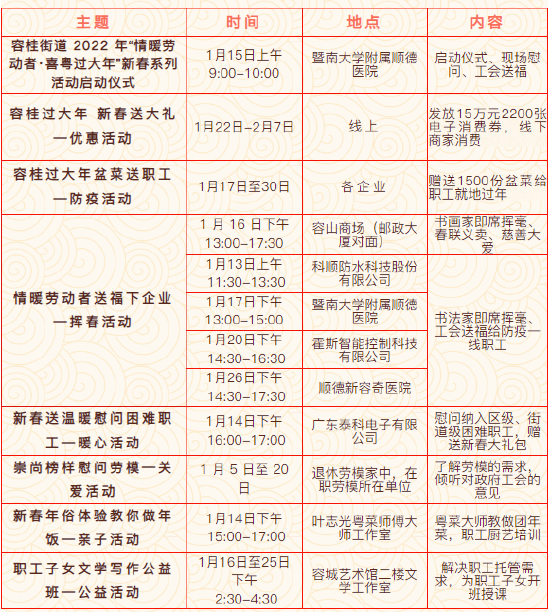 主题 时间 地点 内容
容桂街道 2022 年“情暖劳
动者·喜粤过大年”新春系列
活动启动仪式
1月15日上午
9:00-10:00
暨南大学附属顺德
医院
启动仪式、现场慰
问、工会送福
容桂过大年 新春送大礼
—优惠活动
1月22日-2月7日
线上
发放15万元2200张
电子消费券，线下
商家消费
容桂过大年盆菜送职工
—防疫活动
1月17日至30日
各企业
赠送1500份盆菜给
职工就地过年
情暖劳动者送福下企业
—挥春活动
1 月 16 日下午
13:00-17:30
容山商场（邮政大
厦对面）
书画家即席挥毫、
春联义卖、慈善大
爱
1月13日上午
11:30-13:30
科顺防水科技股份
有限公司
1月17日下午
13:00-15:00
暨南大学附属顺德
医院
1月20日下午
14:30-16:30
霍斯智能控制科技
有限公司
1月26日下午
14:30-17:30
顺德新容奇医院
书法家即席挥毫、
工会送福给防疫一
线职工
新春送温暖慰问困难职
工—暖心活动
1月14日下午
16:00-17:00
广东泰科电子有限
公司
慰问纳入区级、街
道级困难职工，赠
送新春大礼包
崇尚榜样慰问劳模—关
爱活动
1 月 5 日至 20
日
退休劳模家中，在
职劳模所在单位
了解劳模的需求，
倾听对政府工会的
意见
新春年俗体验教你做年
饭—亲子活动
1月14日下午
15:00-17:00
叶志光粤菜师傅大
师工作室
粤菜大师教做团年
菜，职工厨艺培训
职工子女文学写作公益
班—公益活动
1月16日至25日
下午
2:30-4:30
容城艺术馆二楼文
学工作室
解决职工托管需
求，为职工子女开
班授课